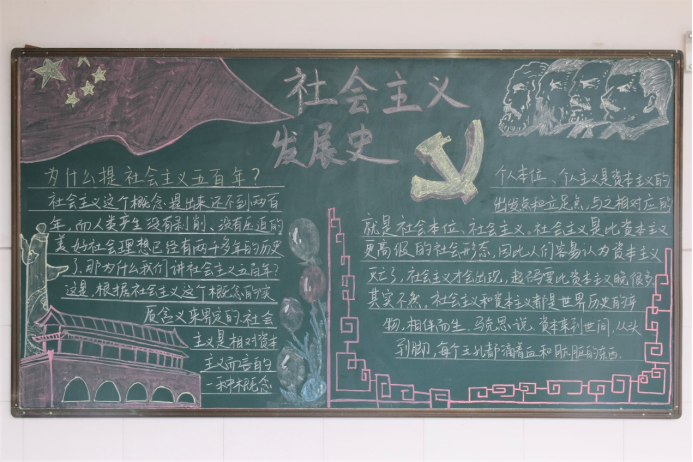 社会主义
发展史
为什么提社会主义五百年？
社会主义这个概念提出来还不到两百
年，而人类产生没有剥削、没有压迫的
美好社会理想已经有两千多年的历史
了，那为什么我们讲社会主义五百年？
这是根据社会主义这个概念的实
质含义来界定的社会
主义是相对资本
主义而言的
一种概念
个人本位、个人主义是资本主义的
出发点和立足点，与之相对应的
就是社会本位、社会主义，社会主义是比资本主义
更高级的社会形态，因此人们容易认为资本主义
灭亡了，社会主义才会出现，起码要比资本主义晚很多
其实不然，社会主义和资本主义都是世界历史的产
物，相伴而生，马克思说：资本来到世间，从头
到脚，每个毛孔都滴着血和肮脏的东西.